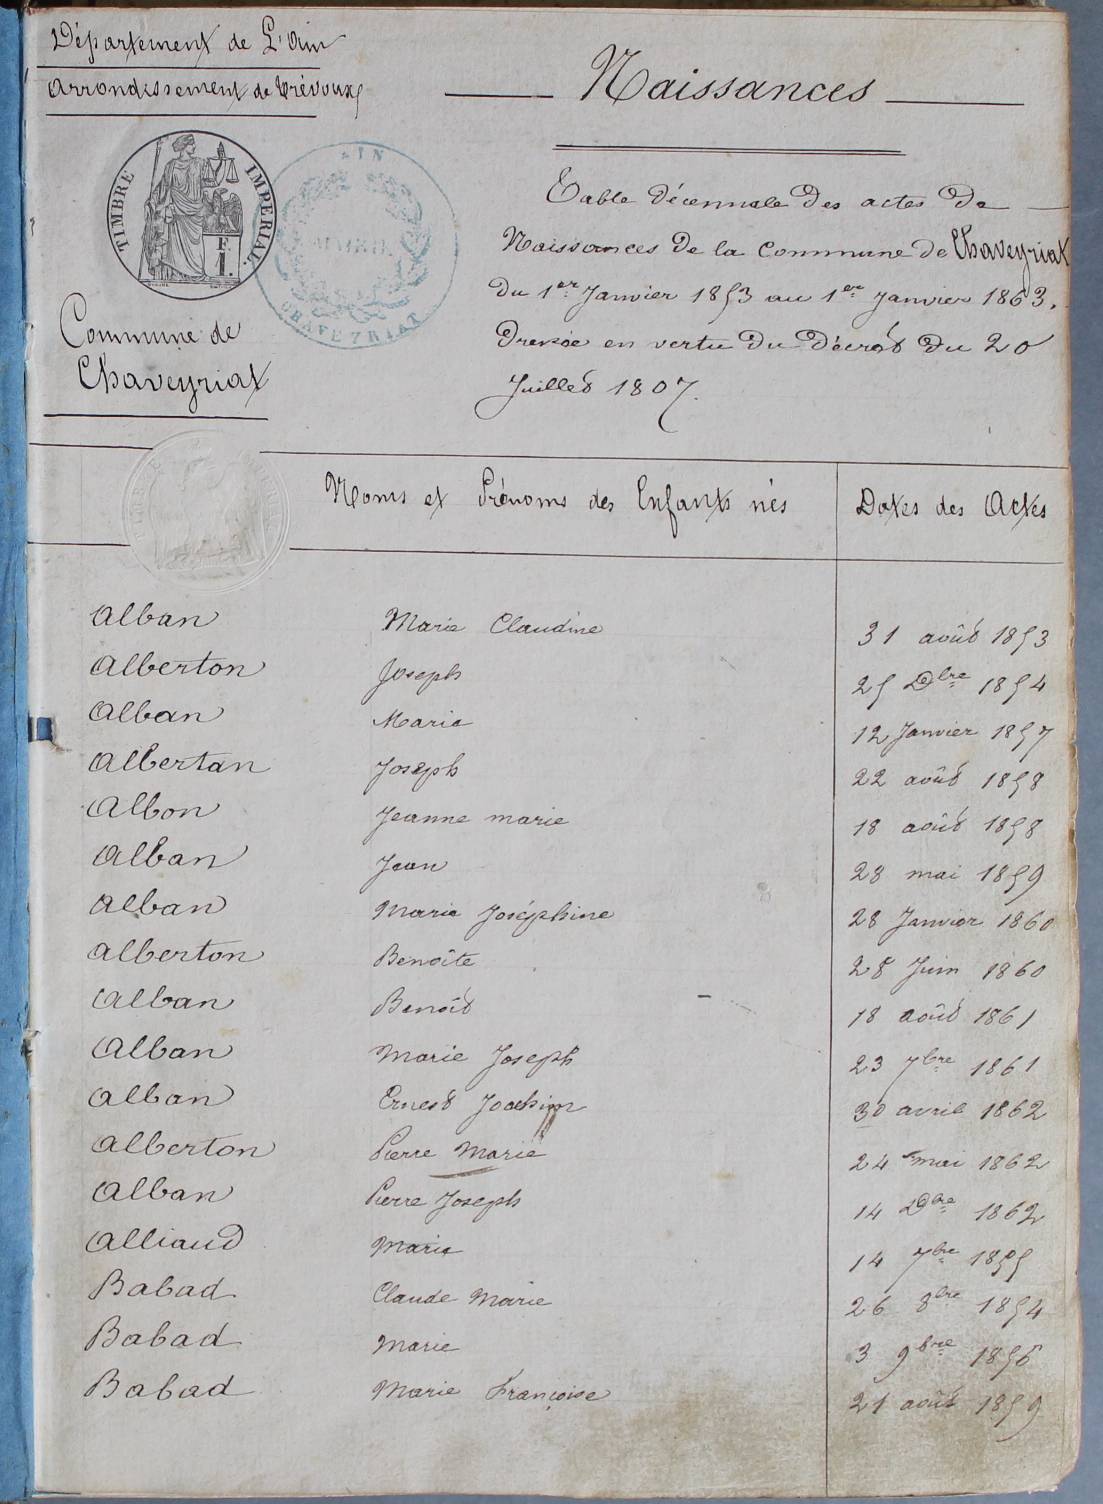 Département de L'Ain
Arrondissement de Trévoux
Naissances
TIMBRE IMPERIAL
F.
1.
AIN
MAIRIE
CHAVEYRIAT
Table Décennale des actes de
Naissances de la Commune de Chaveyriat
du 1er Janvier 1853 au 1er Janvier 1863.
Dressée en vertu du Décret du 20
Juillet 1807.
Commune de
Chaveyriat
Noms et Prénoms des Enfants nés Dates des Actes
Alban Marie Claudine 31 août 1853
Alberton Joseph 25 Dbre 1854
Alban Marie 12 Janvier 1857
Albertan Joseph 22 août 1858
Albon Jeanne marie 18 août 1858
Alban Jean 28 mai 1859
Alban Marie Joséphine 28 Janvier 1860
Alberton Benoîte 28 Juin 1860
Alban Benoît 18 août 1861
Alban Marie Joseph 23 7bre 1861
Alban Ernest Joachim 30 avril 1862
Alberton Pierre Marie 24 mai 1862
Alban Pierre Joseph 14 Dbre 1862
Alliaud Marie 14 7bre 1855
Babad Claude Marie 26 8bre 1854
Babad Marie 3 9bre 1856
Babad Marie Françoise 21 août 1859